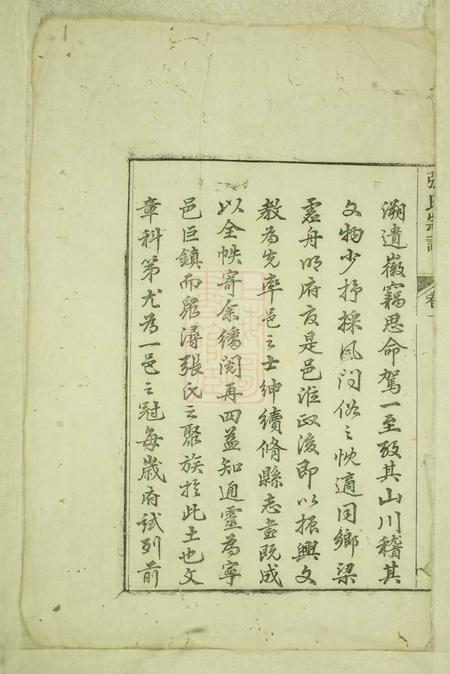 張氏宗譜
卷一
溯遺徽竊思命駕一至攷其山川稽其
文物少抒採風問俗之忱適同鄉梁
靄舟明府友是邑涖政後即以振興文
教為先率邑之士紳續脩縣志並既成
以全帙寄余繙閱再四益知通靈為寧
邑巨鎮而眾潯張氏之聚族於此土也文
章科第尤為一邑之冠每歲府試列前